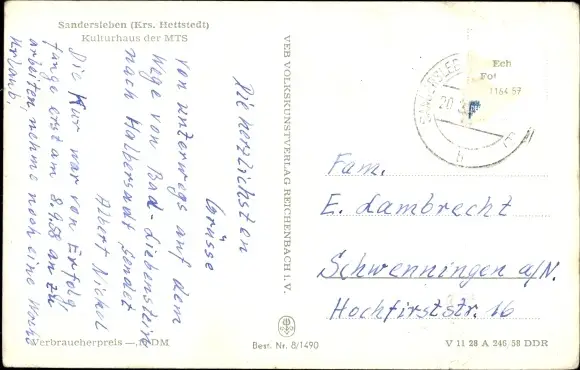 Sandersleben (Krs. Hettstedt)
Kulturhaus der MTS
Die herzlichsten
Grüsse
von unterwegs auf dem
Wege von Bad-Liebenstein
nach Halberstadt sendet
Albert Nickel
Die Kur war von Erfolg,
fange erst am 8.9.58 an zu
arbeiten, nehme noch eine Woche
Urlaub.
Verbraucherpreis —, DM
VEB VOLKSKUNSTVERLAG REICHENBACH i. V.
Best. Nr. 8/1490
Ech
Fot
1164 57
SANDERSLEB
20.
b
Fam.
E. Lambrecht
Schwenningen a/N.
Hochfirststr. 16
V 11 28 A 246 58 DDR